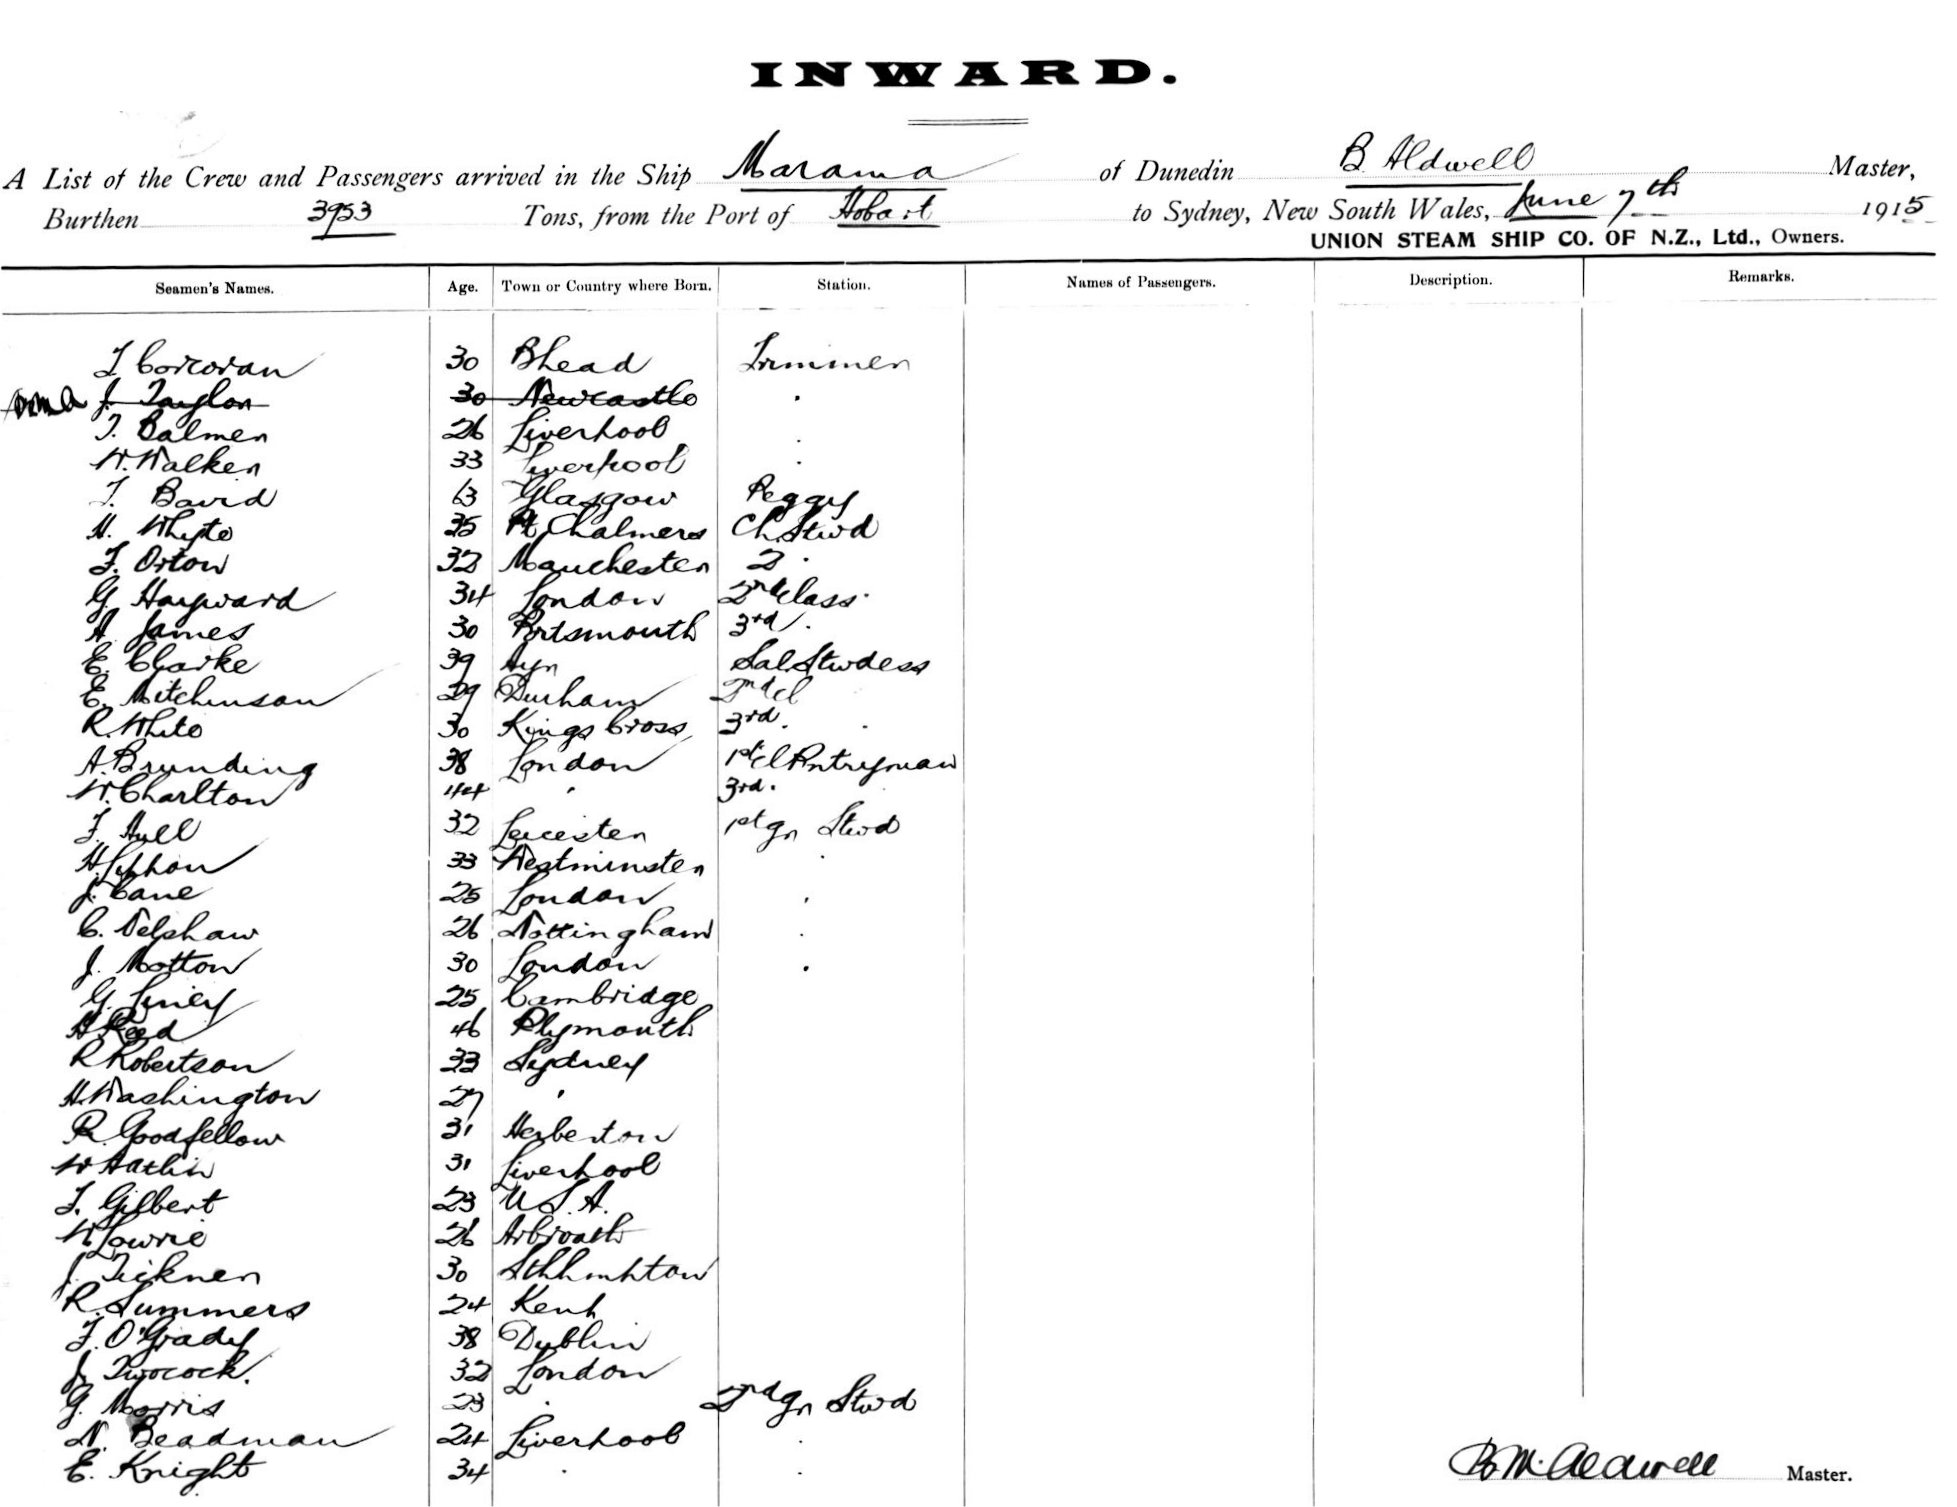 INWARD.
A List of the Crew and Passengers arrived in the Ship Marama of Dunedin B. Aldwell Master,
Burthen 3953 Tons, from the Port of Hobart to Sydney, New South Wales, June 7th 1915
UNION STEAM SHIP CO. OF N.Z., Ltd., Owners.
Seamen's Names. Age. Town or Country where Born. Station. Names of Passengers. Description. Remarks.
T Corcoran 30 Bhead Trimmer
J. Taylor 30 Newcastle .
T. Balmer 26 Liverpool .
W. Walker 33 Liverpool .
T. Bavid 63 Glasgow Peggy
H. Whyte 35 Pt Chalmers Ch. Stwd
F. Orton 32 Manchester 2 .
G. Hayward 34 London 2nd Class .
A. James 30 Portsmouth 3rd .
E. Clarke 39 Ayr Sal. Stwdess
E. Mitchinson 29 Durham 2nd Cl
R. White 30 Kings Cross 3rd . .
A. Brunding 38 London 1st Cl Pntryman
W. Charlton 44 " 3rd .
F. Hull 32 Leicester 1st Gr Stwd
H. 33 Westminster .
J. Cane 25 London .
C. Delshaw 26 Nottingham .
J. Motton 30 London .
G. 25 Cambridge
H Reed 46 Plymouth
R Robertson 33 Sydney
H. Washington 27 "
R. Goodfellow 31 Herberton
W 31 Liverpool
F. Gilbert 23 U.S.A.
W Lowrie 26 Arbroath
J. Tickner 30 Sthhmhton
R. Summers 24 Kent
F. O'Grady 38 Dublin
J. Twocock. 32 London
G. Morris 23 . 2nd Gr Stwd
N. Beadman 24 Liverpool .
E. Knight 34 . .
B. M. Aldwell Master.